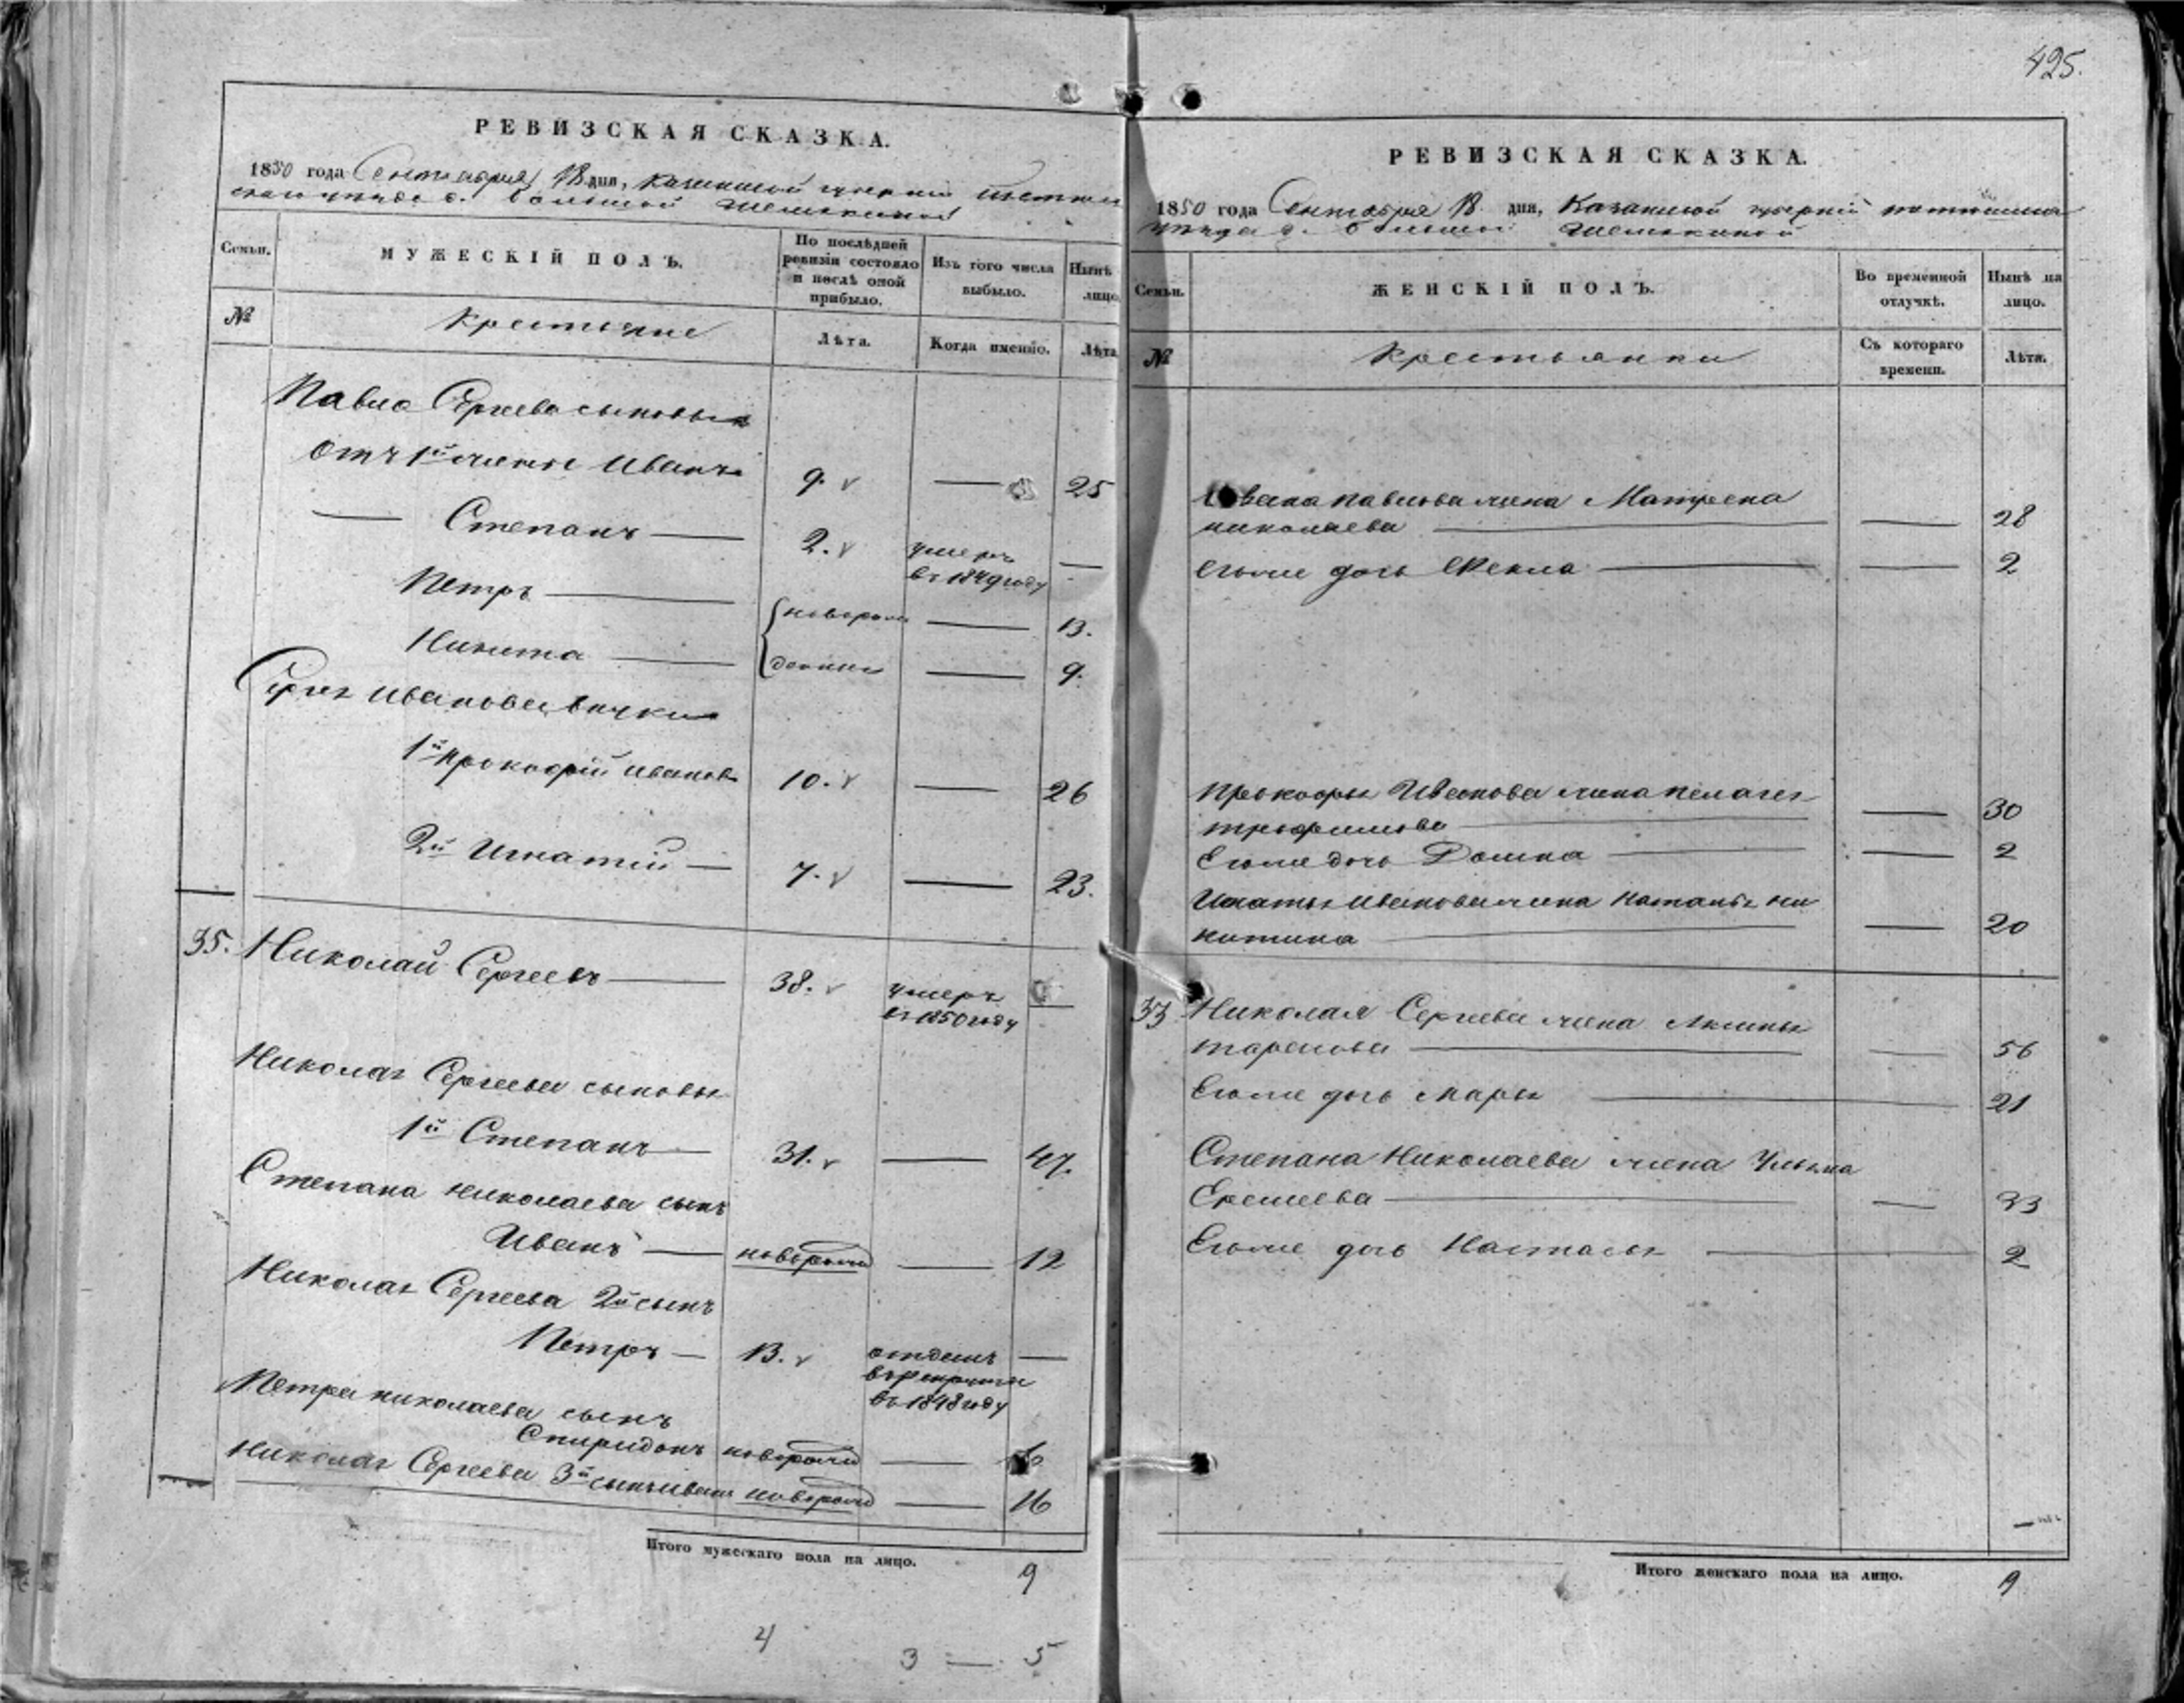 425.
РЕВИЗСКАЯ СКАЗКА.
1850 года Сентября 18 дня, Казанской губернии
уезда д. Большой
Семьи.
МУЖЕСКІЙ ПОЛЪ.
По послѣдней ревизіи состояло и послѣ оной прибыло.
Изъ того числа выбыло.
Нынѣ лицо
№
Крестьяне
Лѣта.
Когда именно.
Лѣта
Павла Сергеева сыновья
Отъ 1й жены Иванъ 9. — 25
— Степанъ — 2. умеръ въ 1849 году —
Петръ — новорож — 13.
Никита — денные — 9.
Сергея Иванова внуки
1й Прокофій Ивановъ 10. — 26
2й Игнатій — 7. — 23.
35. Николай Сергеевъ — 38. умеръ въ 1850 году —
Николая Сергеева сыновья
1й Степанъ — 31. — 47.
Степана Николаева сынъ
Иванъ — новорож — 12
Николая Сергеева 2й сынъ
Петръ — 13. отданъ в рекруты въ 1848 году —
Петра Николаева сынъ
Спиридонъ новорож —
Николая Сергеева 3й сынъ Иванъ новорож — 16
Итого мужескаго пола на лицо. 9
4
3 — 5
РЕВИЗСКАЯ СКАЗКА.
1850 года Сентября 18 дня, Казанской губерніи
уезда д. Большой
Семьи.
ЖЕНСКІЙ ПОЛЪ.
Во временной отлучкѣ.
Нынѣ на лицо.
№
Крестьянки
Съ котораго времени.
Лѣта.
Ивана Павлова жена Матрена
Николаева — — 28
Егоже дочь Фекла — — 2
Прокофья Иванова жена Пелагея
Трофимова — — 30
Егоже дочь Домна — — 2
Игнатья Иванова жена Наталья Ни
китина — — 20
33 Николая Сергеева жена
— — 56
Егоже дочь Марья — 21
Степана Николаева жена Ульяна
Еремеева — — 33
Егоже дочь Настасья — 2
Итого женскаго пола на лицо. 9